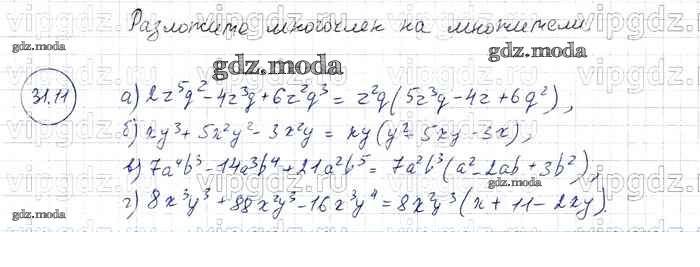 Разложите многочлен на множители.
gdz.moda
gdz.moda
gdz.moda
31.11
а) 2z⁵q² - 4z³q + 6z²q³ = z²q(5z³q - 4z + 6q²),
б) xy³ + 5x²y² - 3x²y = xy(y² - 5xy - 3x),
в) 7a⁴b³ - 14a³b⁴ + 21a²b⁵ = 7a²b³(a² - 2ab + 3b²),
г) 8x³y³ + 88x²y³ - 16x³y⁴ = 8x²y³(x + 11 - 2xy).
gdz.moda
gdz.moda
gdz.moda
vipgdz.ru